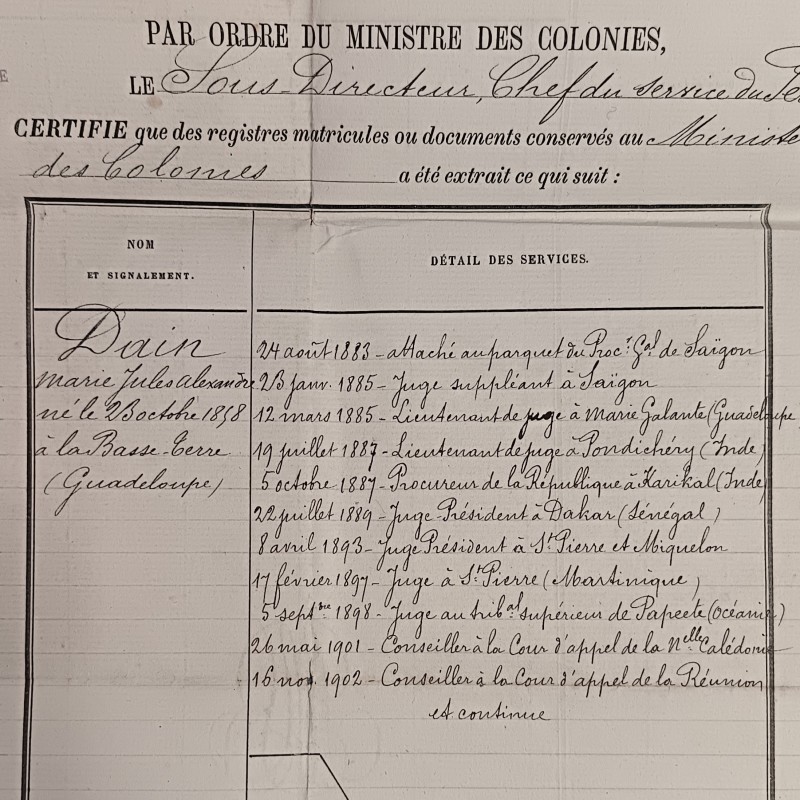 PAR ORDRE DU MINISTRE DES COLONIES,
E
LE Sous-Directeur, Chef du service du Pe
CERTIFIE que des registres matricules ou documents conservés au Ministe
des Colonies a été extrait ce qui suit :
NOM
ET SIGNALEMENT.
DÉTAIL DES SERVICES.
Dain
Marie Jules Alexandre
né le 23 octobre 1858
à la Basse-Terre
(Guadeloupe)
24 août 1883 - attaché au parquet du Proc.r Gal de Saïgon
23 janv. 1885 - Juge suppléant à Saïgon
12 mars 1885 - Lieutenant de juge à Marie Galante (Guadeloupe
19 juillet 1887 - Lieutenant de juge à Pondichéry (Inde)
5 octobre 1887 - Procureur de la République à Karikal (Inde)
22 juillet 1889 - Juge-Président à Dakar (Sénégal)
8 avril 1893 - Juge Président à St Pierre et Miquelon
17 février 1897 - Juge à St Pierre (Martinique)
5 septbre 1898 - Juge au tribal supérieur de Papeete (Océanie)
26 mai 1901 - Conseiller à la Cour d'appel de la Nelle Calédonie
16 nov. 1902 - Conseiller à la Cour d'appel de la Réunion
et continue